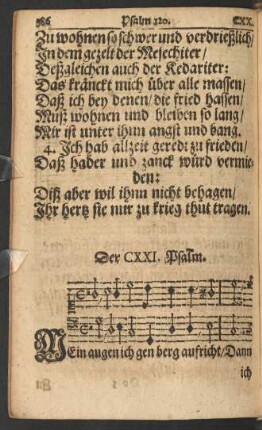 386 Psalm 120. CXX.
Zu wohnen so schwer und verdrießlich/
In dem gezelt der Mesechiter/
Deßgleichen auch der Kedariter:
Das kränckt mich über alle massen/
Daß ich bey denen/die fried hassen/
Muß wohnen und bleiben so lang/
Mir ist unter ihnn angst und bang.
4. Ich hab allzeit geredt zu frieden/
Daß hader und zanck würd vermie-
den:
Diß aber wil ihnn nicht behagen/
Ihr hertz sie nur zu krieg thut tragen.
Der CXXI. Psalm.
MEin augen ich gen berg aufricht/Dann
ich